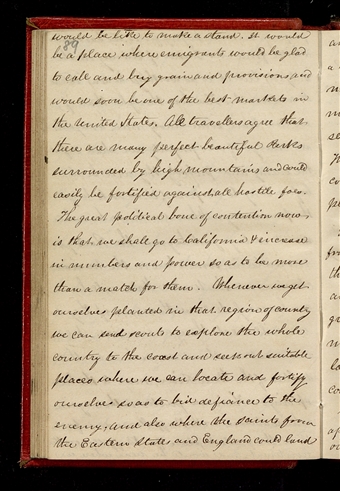 would be like to make a stand. It would
89
be a place where emigrants would be glad
to call and buy grain and provisions, and
would soon be one of the best markets in
the United States. All travellers agree that
there are many perfect beautiful Parks
surrounded by high mountains and could
easily be fortified against all hostile foes.
The great political bone of contention now
is that we shall go to California & increase
in numbers and power so as to be more
than a match for them. Whenever we get
ourselves planted in that region of country
we can send scouts to explore the whole
country to the coast and seek out suitable
places where we can locate and fortify
ourselves so as to bid defiance to the
enemy; and also where the saints from
the Eastern States and England could land